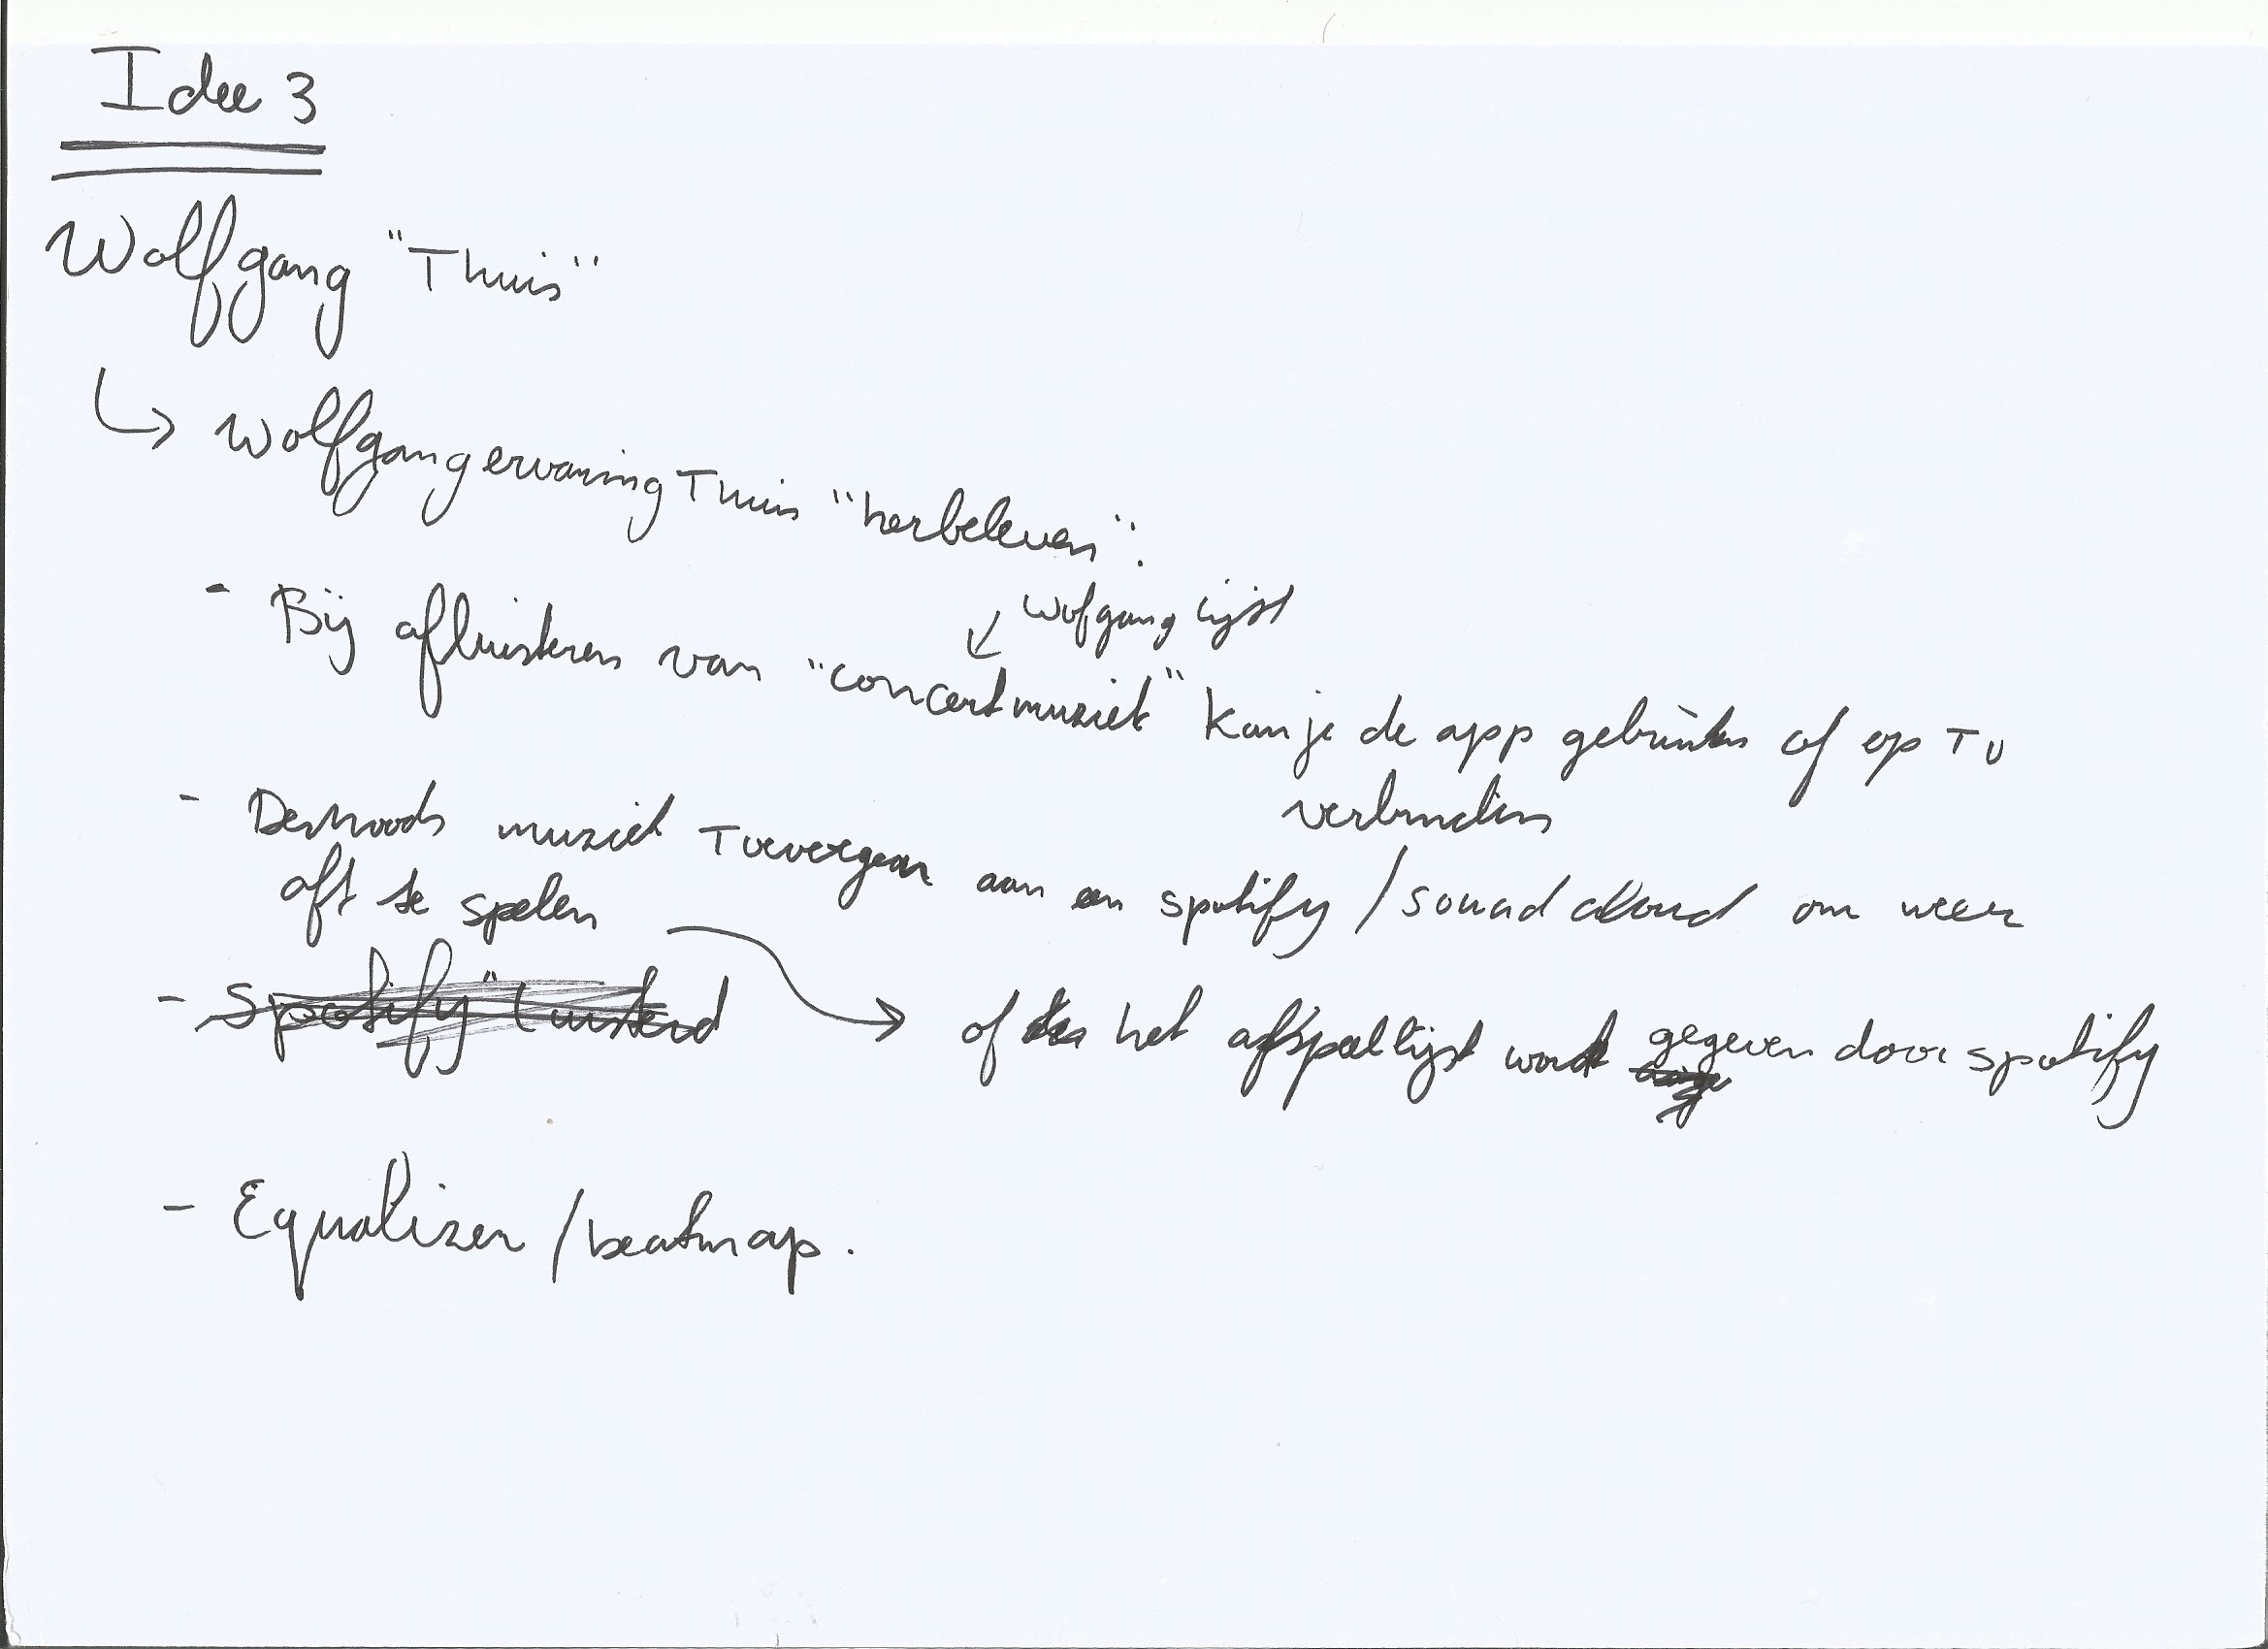 Idee 3
Wolfgang "Thuis"
↳ Wolfgang ervaring Thuis "herbeleven".
wofgang lijst
- Bij afluisteren van "concertmuziek" kan je de app gebruiken of op TV
verbinden
- Desnoods muziek Toevoegen aan en spotify / soundcloud om weer
aft te spelen
- Spotify" luisterd
of het afspeellijst wordt gegeven door spotify
- Equalizer / beatmap.